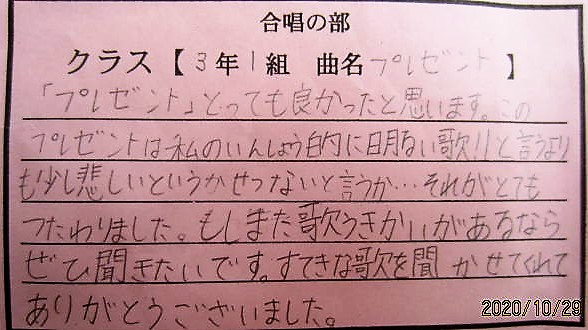 合唱の部
クラス【3年1組 曲名プレゼント】
「プレゼント」とっても良かったと思います。この
プレゼントは私のいんしょう的に明るい歌!!と言うより
も少し悲しいというかせつないと言うか…それがとても
つたわりました。もしまた歌うきかいがあるなら
ぜひ聞きたいです。すてきな歌を聞かせてくれて
ありがとうございました。
2020/10/29